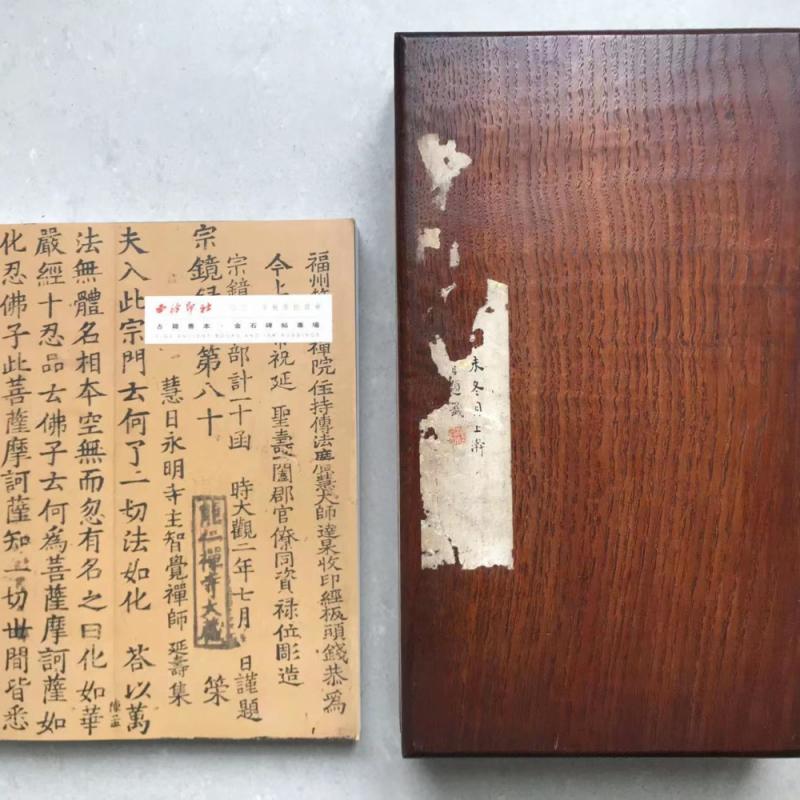 福州 禪院住持傳法廣慧大師達杲收印經板頭錢恭為
今上 祝延 聖壽闔郡官僚同資祿位彫造
宗鏡 部計一十函 時大觀二年七月 日謹題
宗鏡 第八十
能仁禪寺大藏
慧日永明寺主智覺禪師 延壽集
夫入此宗門云何了一切法如化 答以萬
法無體名相本空無而忽有名之曰化如華
嚴經十忍品云佛子云何為菩薩摩訶薩如
化忍佛子此菩薩摩訶薩知一切世間皆悉
西泠印社
古籍善本·金石碑帖專場
未冬月上澣
題籤